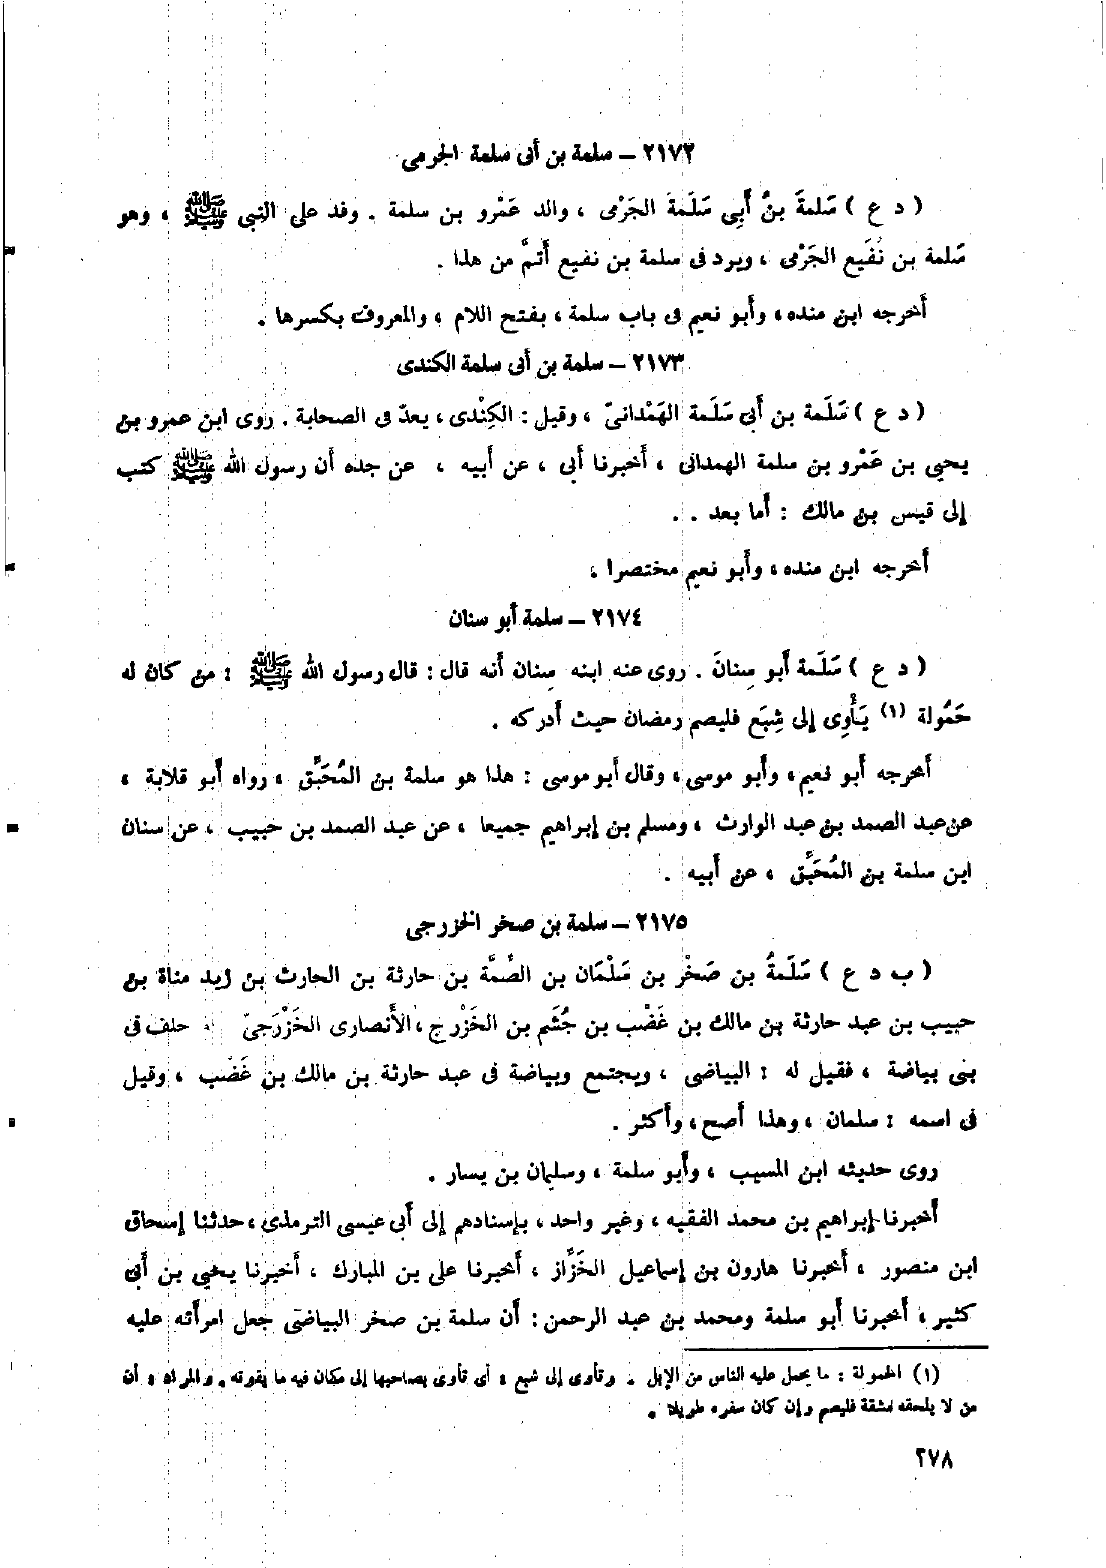 ٢١٧٢ – سلمة بن أبى سلمة الجرمى
( د ع ) سَلمةَ بنُ أَبِى سَلَمةَ الجَرْمى ، والد عَمْرو بن سلمة . وفد على النبى ﷺ ، وهو
سَلمة بن نُفَيع الجَرْمى ، ويرد فى سلمة بن نفيع أَتمَّ من هذا .
أخرجه ابن منده ، وأبو نعيم فى باب سلمة ، بفتح اللام ، والمعروف بكسرها .
٢١٧٣ – سلمة بن أبى سلمة الكندى
( د ع ) سَلَمة بن أَبى سَلَمة الهَمْدانىّ ، وقيل : الكِنْدى ، يعدّ فى الصحابة . روى ابن عمرو بن
يحيى بن عَمْرو بن سلمة الهمدانى ، أخبرنا أبى ، عن أبيه ، عن جده أن رسول الله ﷺ كتب
إلى قيس بن مالك : أما بعد . .
أخرجه ابن منده ، وأبو نعيم مختصرا .
٢١٧٤ – سلمة أبو سنان
( د ع ) سَلَمة أَبو سِنانَ . روى عنه ابنه سِنان أَنه قال : قال رسول الله ﷺ : من كان له
حَمُولة (١) يَأْوِى إلى شِبَع فليصم رمضان حيث أَدركه .
أخرجه أبو نعيم ، وأبو موسى ، وقال أبو موسى : هذا هو سلمة بن المُحَبِّق ، رواه أبو قلابة ،
عن عبد الصمد بن عبد الوارث ، ومسلم بن إبراهيم جميعا ، عن عبد الصمد بن حبيب ، عن سنان
ابن سلمة بن المُحَبِّق ، عن أبيه .
٢١٧٥ – سلمة بن صخر الخزرجى
( ب د ع ) سَلَمةُ بن صَخْر بن سَلْمَان بن الصِّمَّة بن حارثة بن الحارث بن زيد مناة بن
حبيب بن عبد حارثة بن مالك بن غَضْب بن جُشَم بن الخَزْرج ، الأَنصارى الخَزْرَجىّ ، حلف فى
بنى بياضة ، فقيل له : البياضى ، ويجتمع وبياضة فى عبد حارثة بن مالك بن غَضْب ، وقيل
فى اسمه : سلمان ، وهذا أصح ، وأكثر .
روى حديثه ابن المسيب ، وأبو سلمة ، وسليمان بن يسار .
أخبرنا إبراهيم بن محمد الفقيه ، وغير واحد ، بإسنادهم إلى أبى عيسى الترمذى ، حدثنا إسحاق
ابن منصور ، أخبرنا هارون بن إسماعيل الخَزَّاز ، أخبرنا على بن المبارك ، أخبرنا يحيى بن أبى
كثير ، أخبرنا أبو سلمة ومحمد بن عبد الرحمن : أن سلمة بن صخر البياضى جعل امرأته عليه
(١) الحمولة : ما يحمل عليه الناس من الإبل . وتأوى إلى شبع ، أى تأوى بصاحبها إلى مكان فيه ما يقوته . والمراد ، أن
من لا يلحقه مشقة فليصم وإن كان سفره طويلا .
٢٧٨